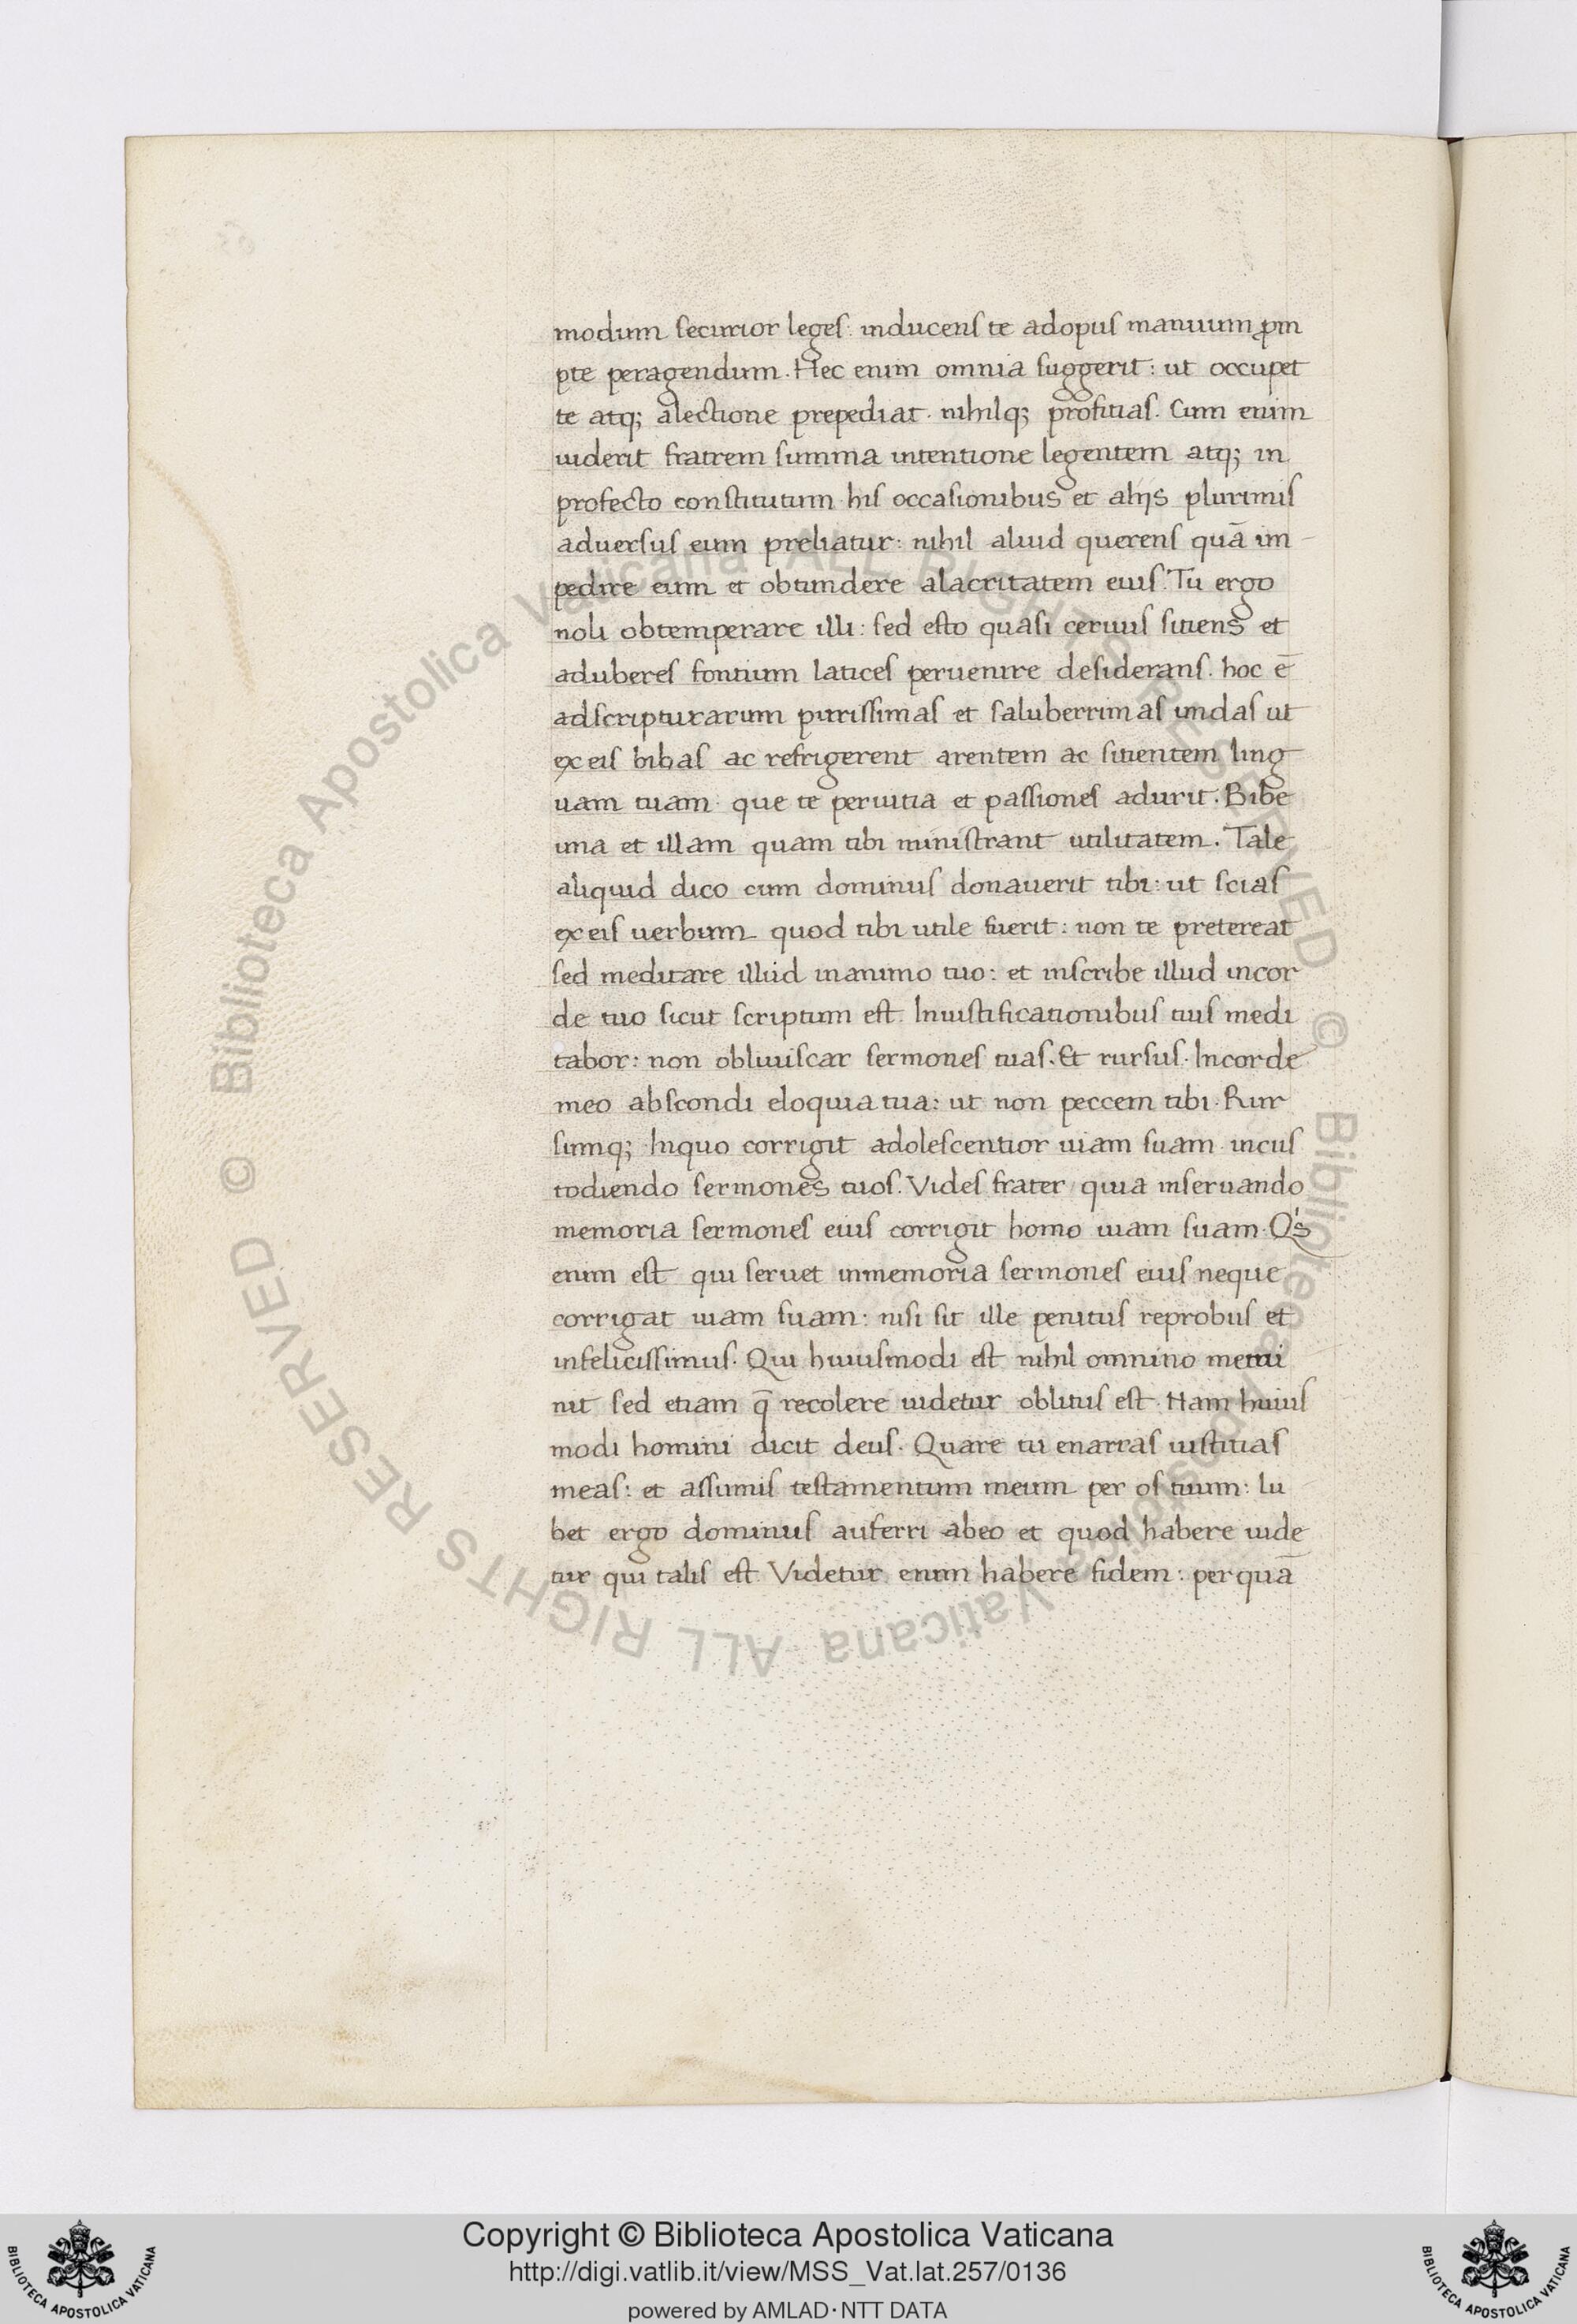 modum securior leges: inducens te adopus manuum ꝓm
pte peragendum. Hec enim omnia suggerit: ut occupet
te atq; alectione prepediat. nihilq; profitias. Cum enim
uiderit fratrem summa intentione legentem atq; in
profecto constitutum his occasionibus et alijs plurimis
aduersus eum preliatur: nihil aliud querens quā im-
pedire eum et obtundere alacritatem eius. Tu ergo
noli obtemperare illi: sed esto quasi ceruus sitiens et
aduberes fontium latices peruenire desiderans. hoc ē
adscripturarum purissimas et saluberrimas undas ut
exeis bibas ac refrigerent arentem ac sitientem ling
uam tuam que te peruitia et passiones adurit. Bibe
una et illam quam tibi ministrant utilitatem. Tale
aliquid dico cum dominus donauerit tibi: ut scias
exeis uerbum quod tibi utile fuerit: non te pretereat
sed meditare illud inanimo tuo: et inscribe illud incor
de tuo sicut scriptum est. Iniustificationibus tuis medi
tabor: non obliuiscar sermones tuas. Et rursus. Incorde
meo abscondi eloquia tua: ut non peccem tibi. Rur
sumq; Inquo corrigit adolescentior uiam suam. incus
todiendo sermones tuos. Vides frater quia inseruando
memoria sermones eius corrigit homo uiam suam. Q's
enim est qui seruet inmemoria sermones eius neque
corrigat uiam suam: nisi sit ille penitus reprobus et
infelicissimus. Qui huiusmodi est nihil omnino memi
nit sed etiam q̄ recolere uidetur oblitus est. Nam huius
modi homini dicit deus. Quare tu enarras iustitias
meas: et assumis testamentum meum per os tuum: Iu
bet ergo dominus auferri abeo et quod habere uide
tur qui talis est. Videtur enim habere fidem: perquā
Copyright © Biblioteca Apostolica Vaticana
http://digi.vatlib.it/view/MSS_Vat.lat.257/0136
powered by AMLAD·NTT DATA
BIBLIOTECA APOSTOLICA VATICANA
BIBLIOTECA APOSTOLICA VATICANA
© Biblioteca Apostolica Vaticana ALL RIGHTS RESERVED
© Biblioteca Apostolica Vaticana ALL RIGHTS RESERVED